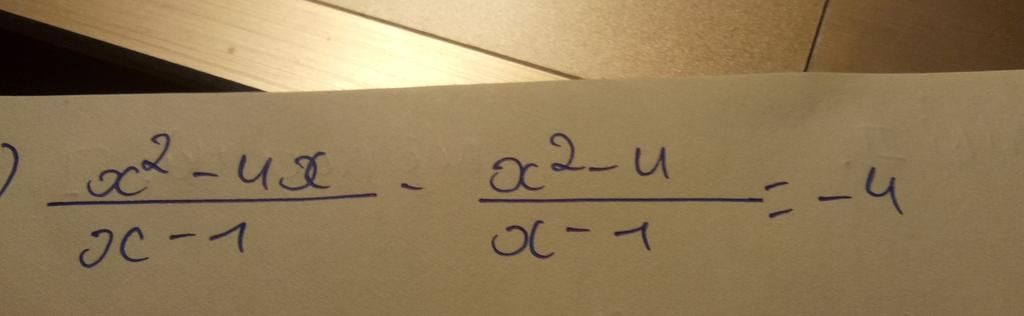 ) \frac{x^2-4x}{x-1} - \frac{x^2-4}{x-1} = -4